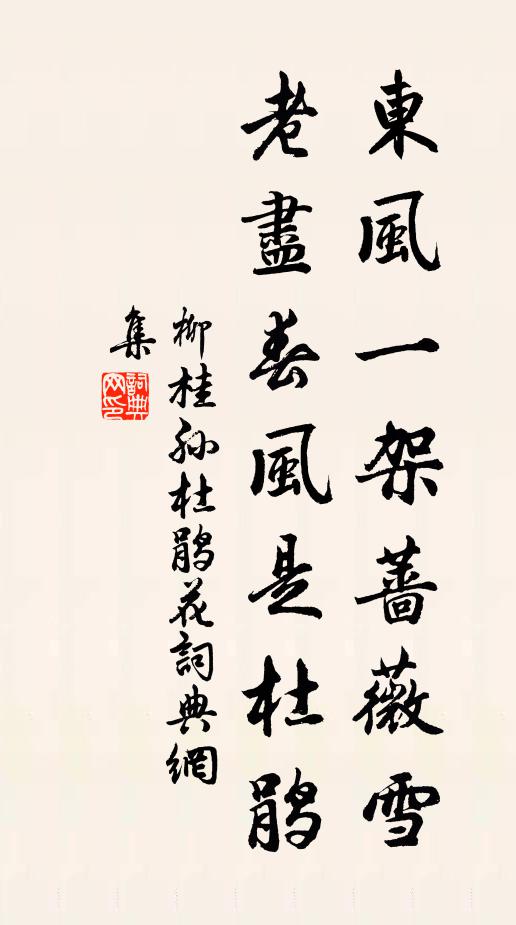 東風一架薔薇雪
老盡春風是杜鵑
柳桂孙杜鵑花詞典網
集
詞典
网印